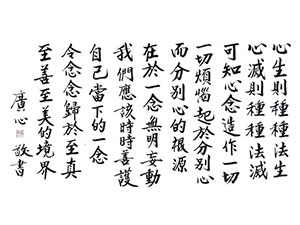 心生則種種法生
心滅則種種法滅
可知心念造作一切
一切煩惱起於分別心
而分別心的根源
在於一念無明妄動
我們應該時時善護
自己當下的一念
令念念歸於至真
至善至美的境界
廣心 敬書